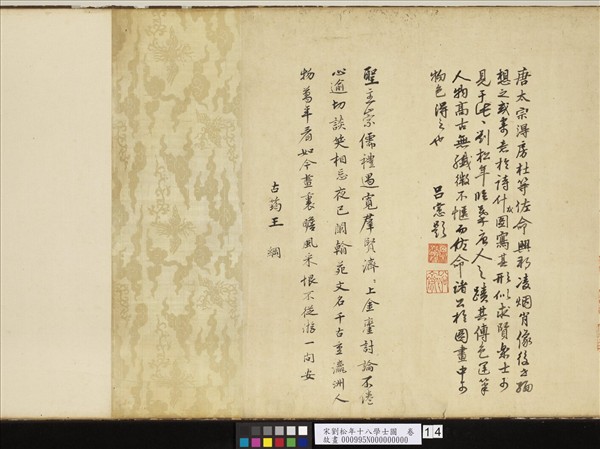 唐太宗得房杜等佐命興彩凌烟肖像後之緬
想之或素老於詩什或圖寫其形似求賢樂士可
見于此劉松年睹募唐人之蹟其傳色運筆
人物高古無纖微不愜而佐命諸公於圖畫中可
物色得之也
呂寰題
聖主崇儒禮遇寬羣賢濟濟上金鑾討論不倦
心逾切談笑相忘夜已闌翰苑文名千古重瀛洲人
物萬年看如今畫裏瞻風采恨不從游一問安
古筠王綱
宋劉松年十八學士圖 卷
故畫 000995N000000000
14